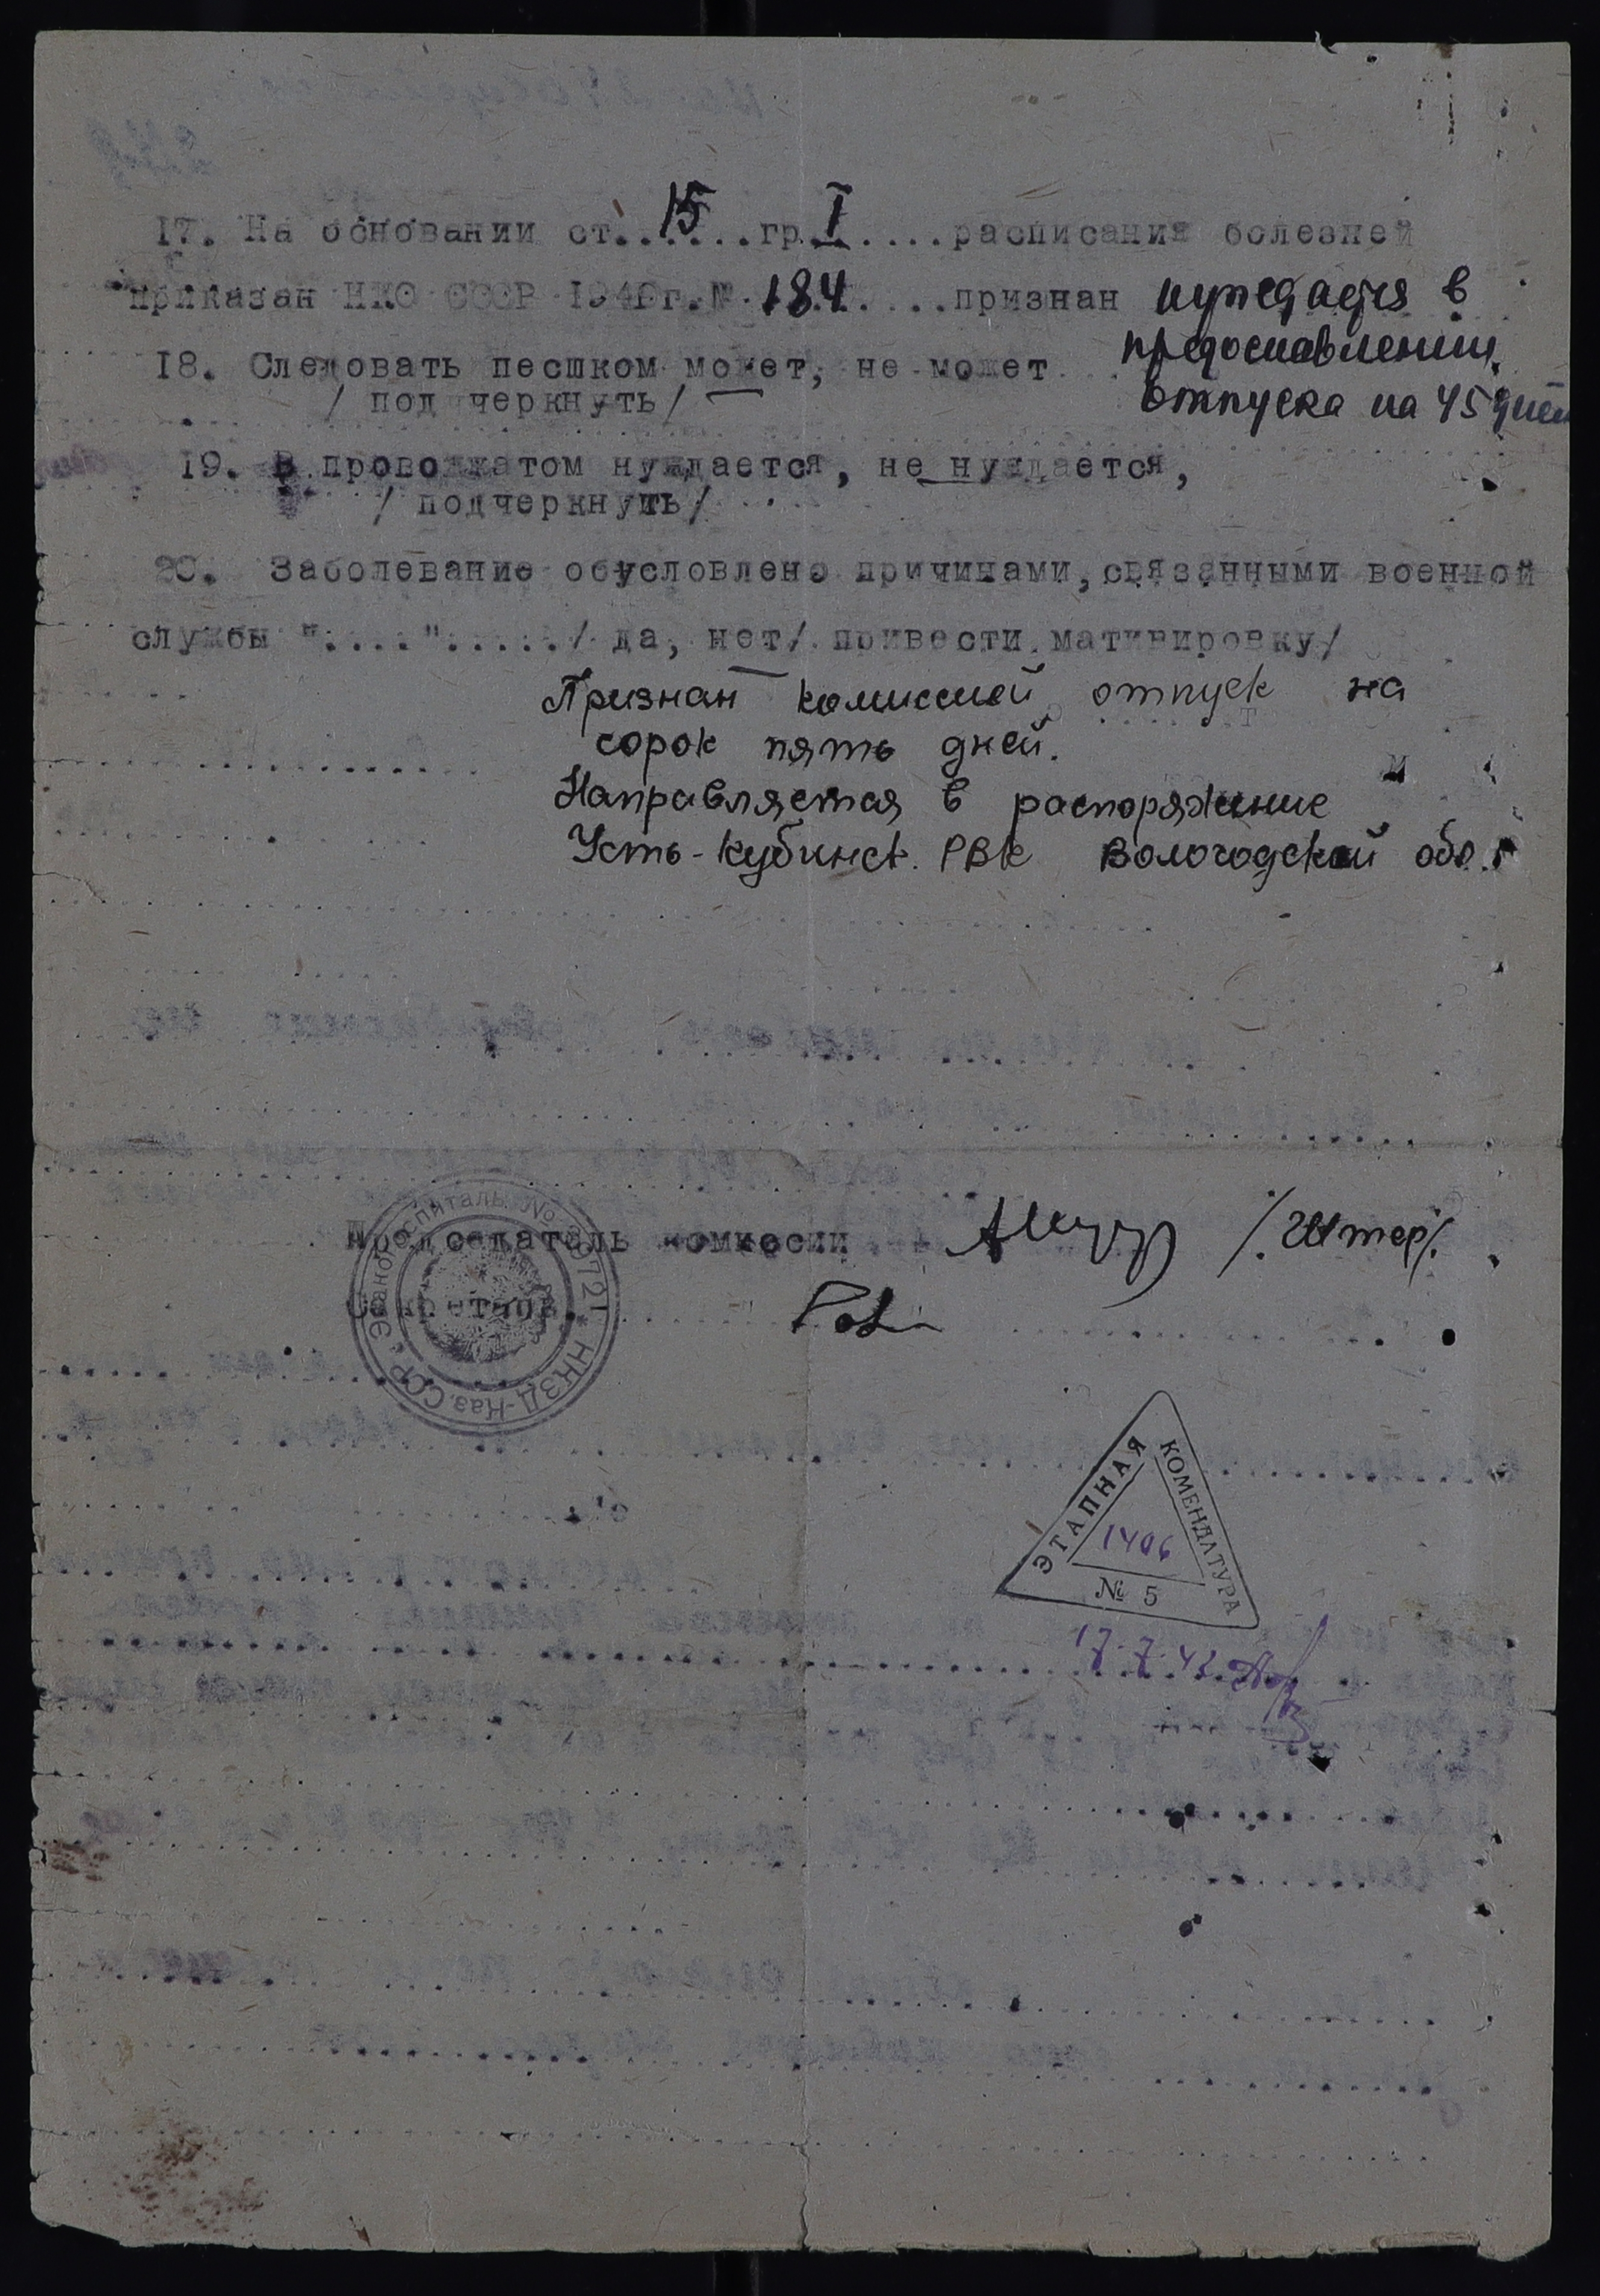 17. На основании ст. 15 гр. I расписания болезней
приказан НКО СССР 1940г.№ 184 признан нуждается в
предоставлении
18. Следовать песшком может, не может
/ подчеркнуть/
отпуска на 45 дней
19. В провожатом нуждается, не нуждается,
/ подчеркнуть/
20. Заболевание обусловлено причинами, связанными военной
службы "....".....​/ да, нет/ привести мативировку/
Признан комиссией отпуск на
сорок пять дней.
Направляется в распоряжение
Усть-Кубинск. РВК Вологодской обл.
Председатель комиссии /Штер/.
Секретарь
Эвакогоспиталь № 3721 * НКЗД-Каз.ССР *
ЭТАПНАЯ
КОМЕНДАТУРА
1406
№ 5
17.7.43